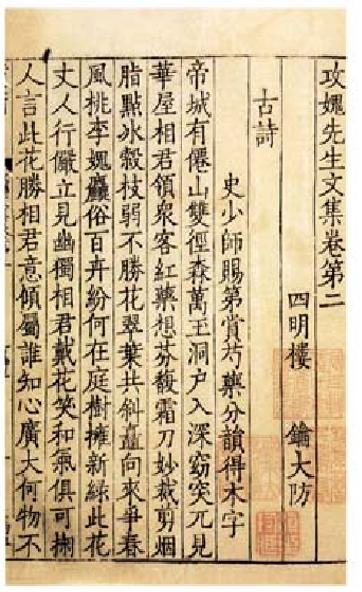 攻媿先生文集卷第二
四明樓 鑰大防
古詩
史少師賜第賞芍藥分韻得木字
帝城有僊山雙徑森萬玉洞户入深窈突兀見
華屋相君領衆客紅藥想芬馥霜刀妙裁剪烟
脂點冰縠枝弱不勝花翠葉共斜矗向來爭春
風桃李媿麤俗百卉紛何在庭樹擁新緑此花
丈人行儼立見幽獨相君戴花笑和氣俱可掬
人言此花勝相君意傾屬誰知心廣大何物不